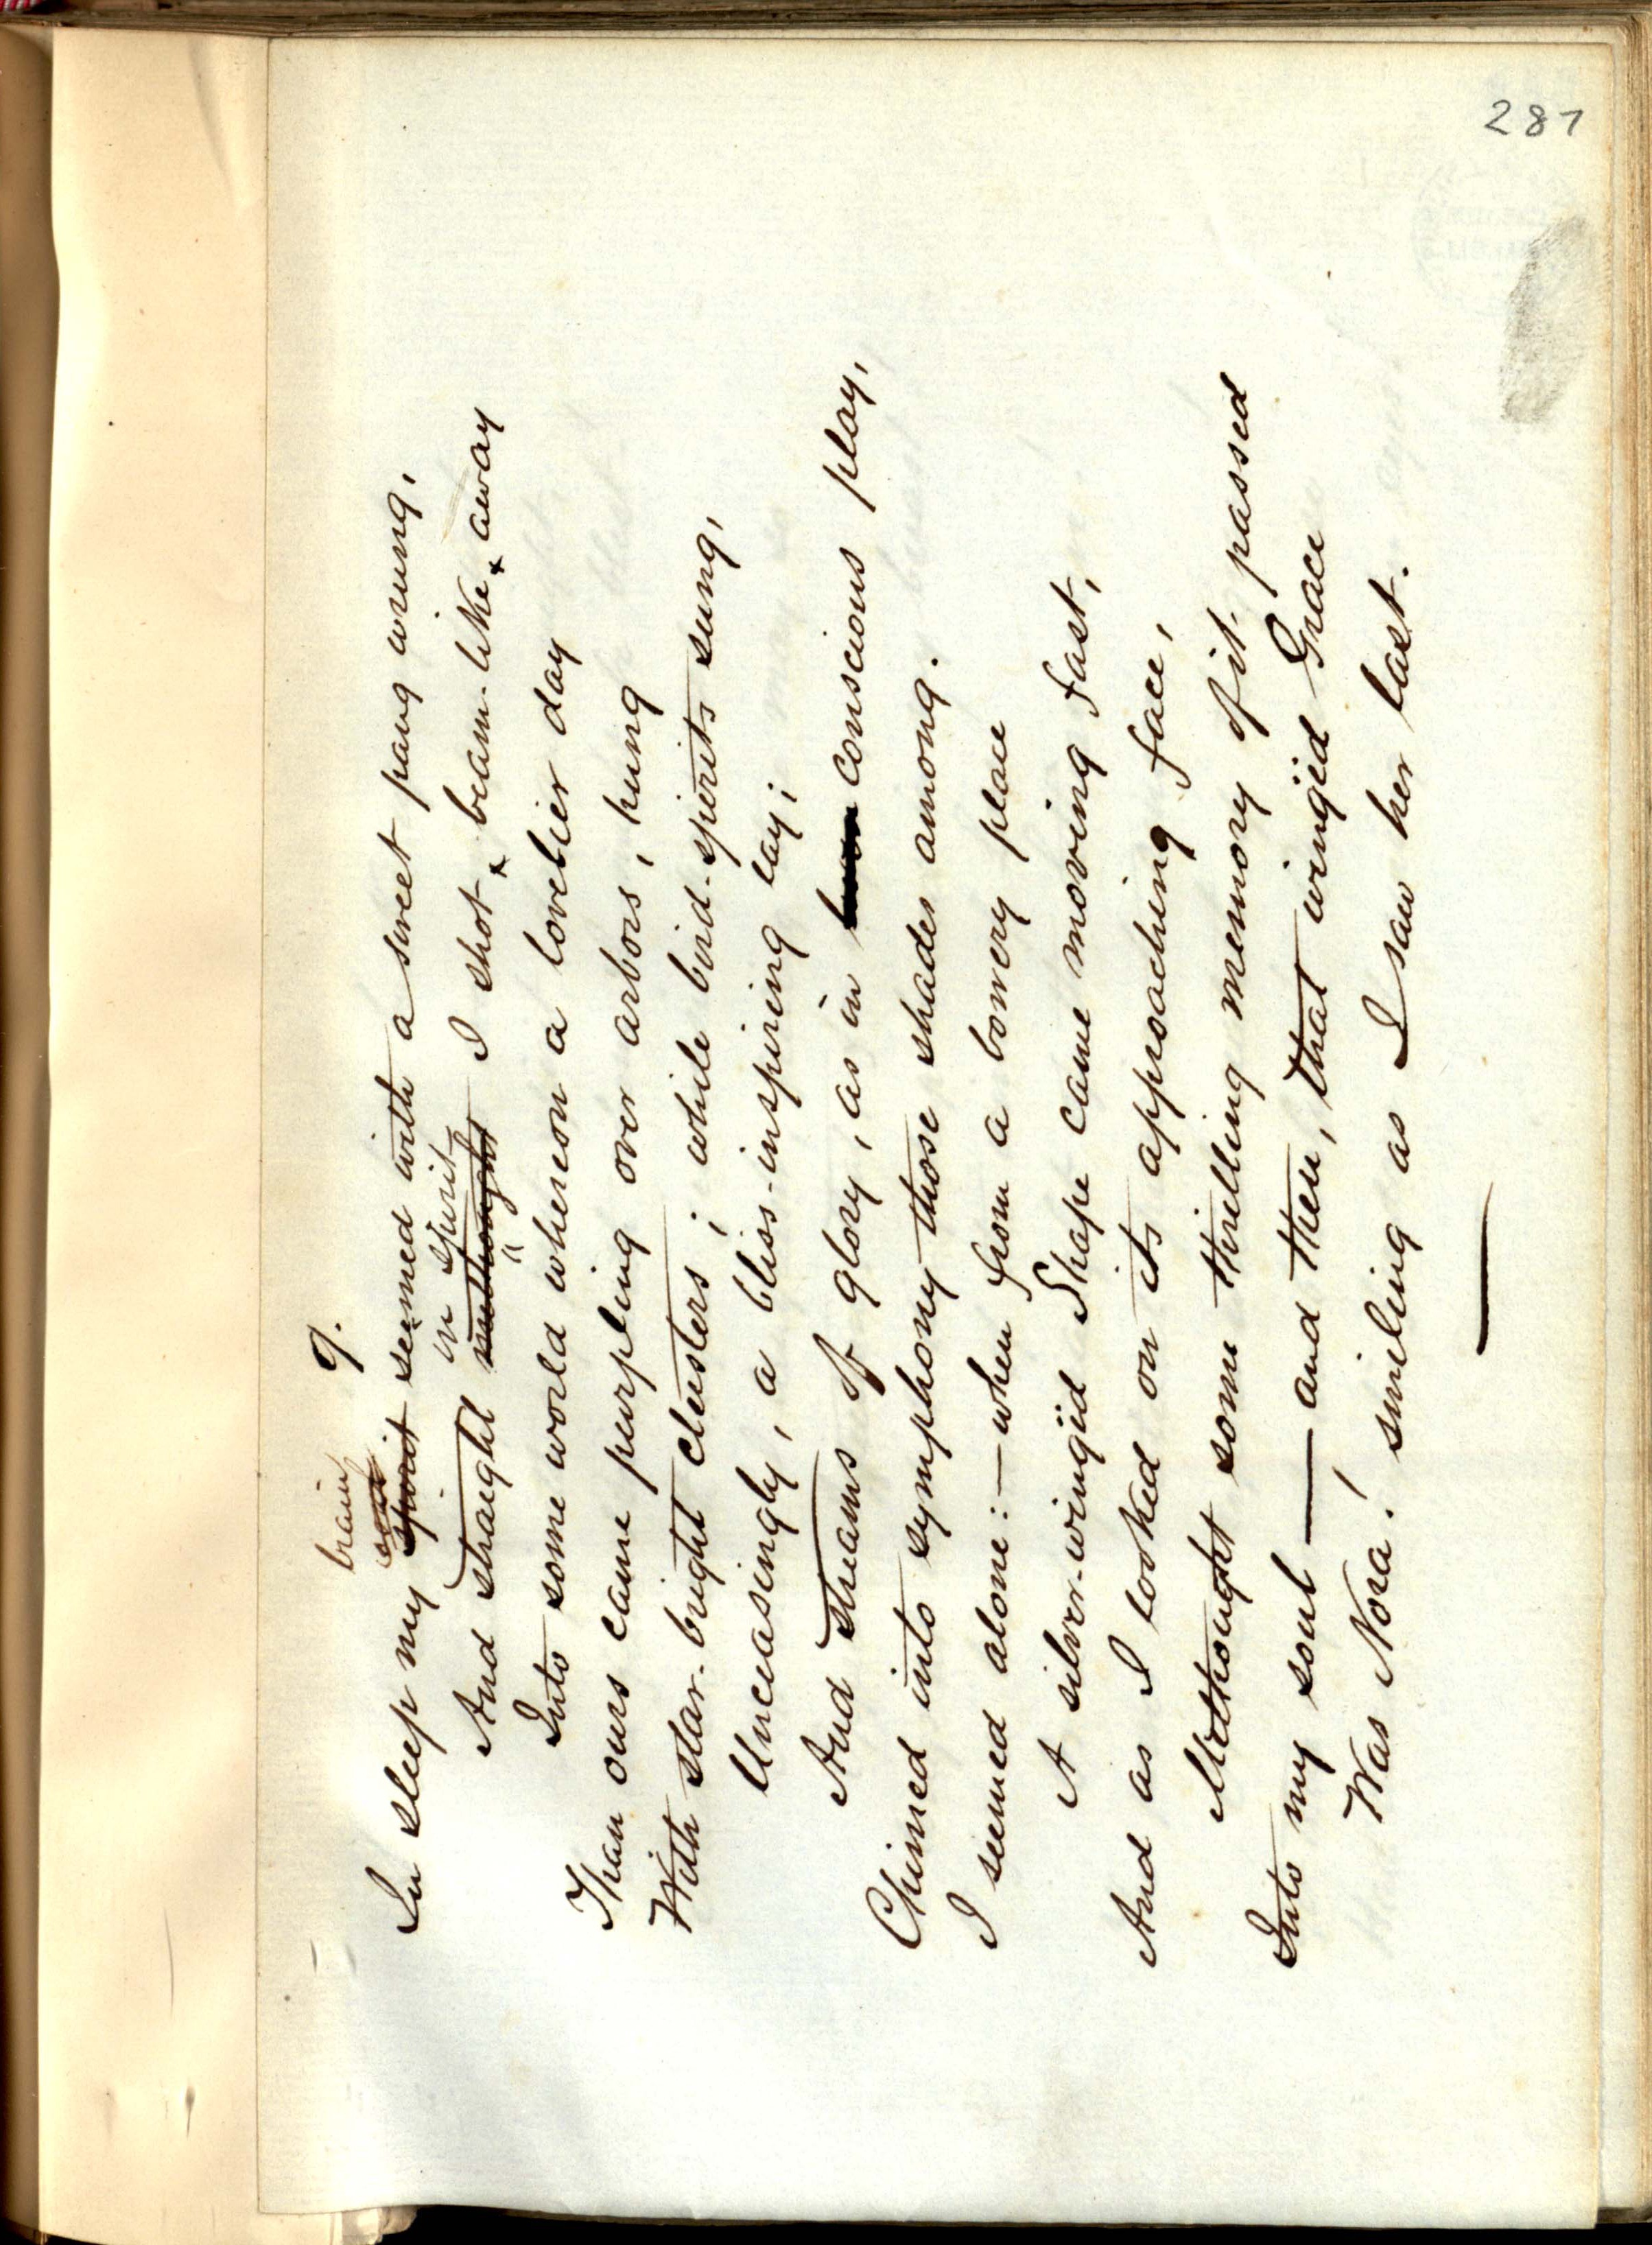 287
9.
brain
soul
In sleep my spirit seemed with a sweet pang wrung,
in spirit
And straight methought I shot, beam-like, away
Into some world whereon a lovelier day
Than ours came purpling over arbors, hung
With star-bright clusters; while bird-spirits sung,
Unceasingly, a bliss-inspiring lay;
And streams of glory, as in conscious play,
Chimed into symphony those shades among.
I seemed alone:—when from a bowery place
A silver-wingëd Shape came moving fast,
And as I looked on its approaching face,
Methought some thrilling memory of it passed
Into my soul — and then, that wingëd Grace
Was Nora! smiling as I saw her last.